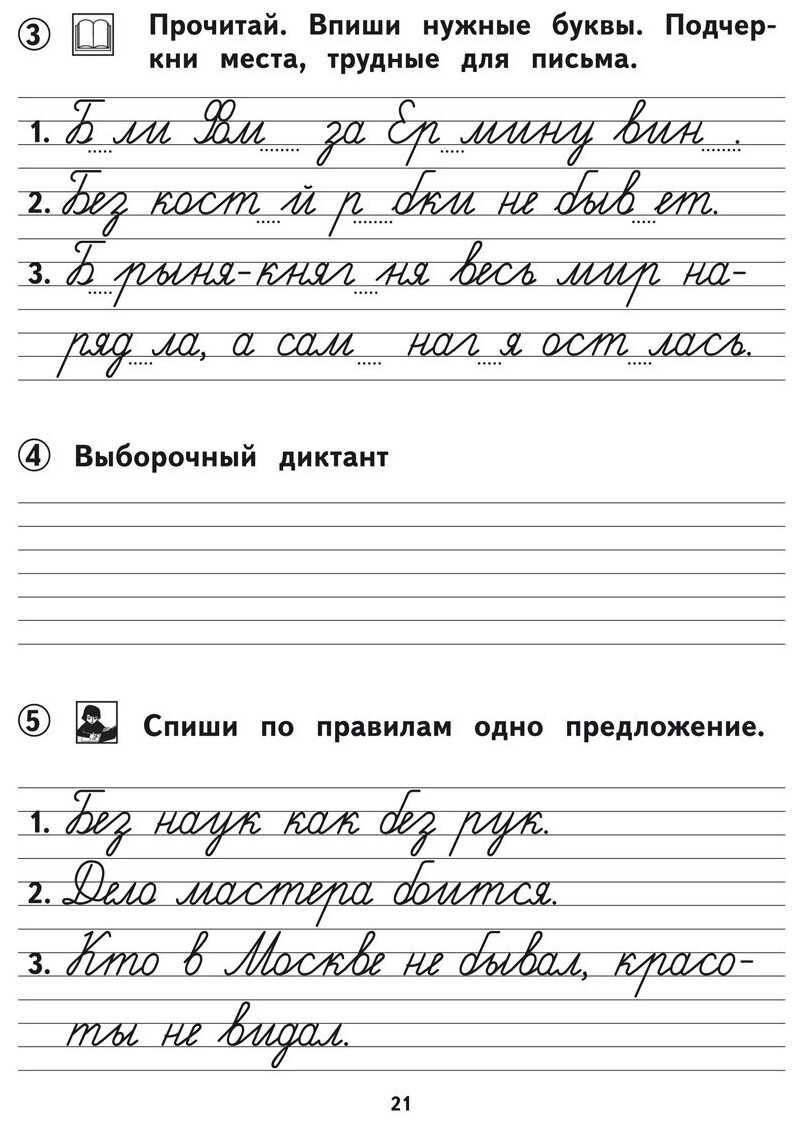 3 Прочитай. Впиши нужные буквы. Подчер-
кни места, трудные для письма.
1. Б....ли Фом...... за Ер....мину вин...... .
2. Без кост....й р......бки не быв....ет.
3. Б....рыня-княг....ня весь мир на-
ряд....ла, а сам.... наг....я ост....лась.
4 Выборочный диктант
5 Спиши по правилам одно предложение.
1. Без наук как без рук.
2. Дело мастера боится.
3. Кто в Москве не бывал, красо-
ты не видал.
21